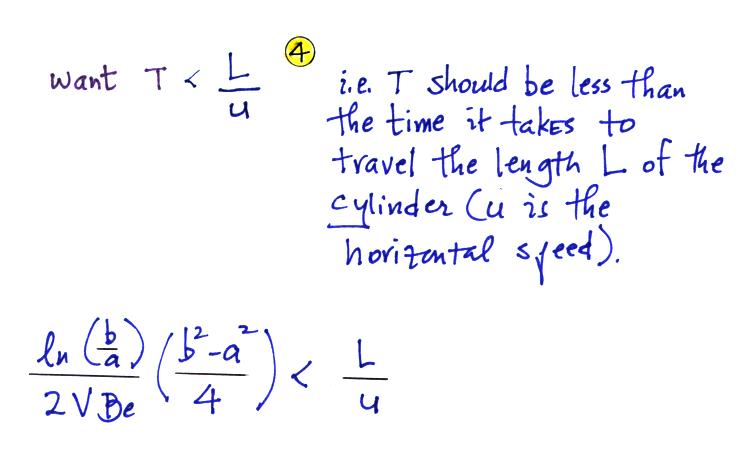 want T < L/u ④
i.e. T should be less than
the time it takes to
travel the length L of the
cylinder (u is the
horizontal speed).
ln(b/a)/(2VBe) ((b²-a²)/4) < L/u